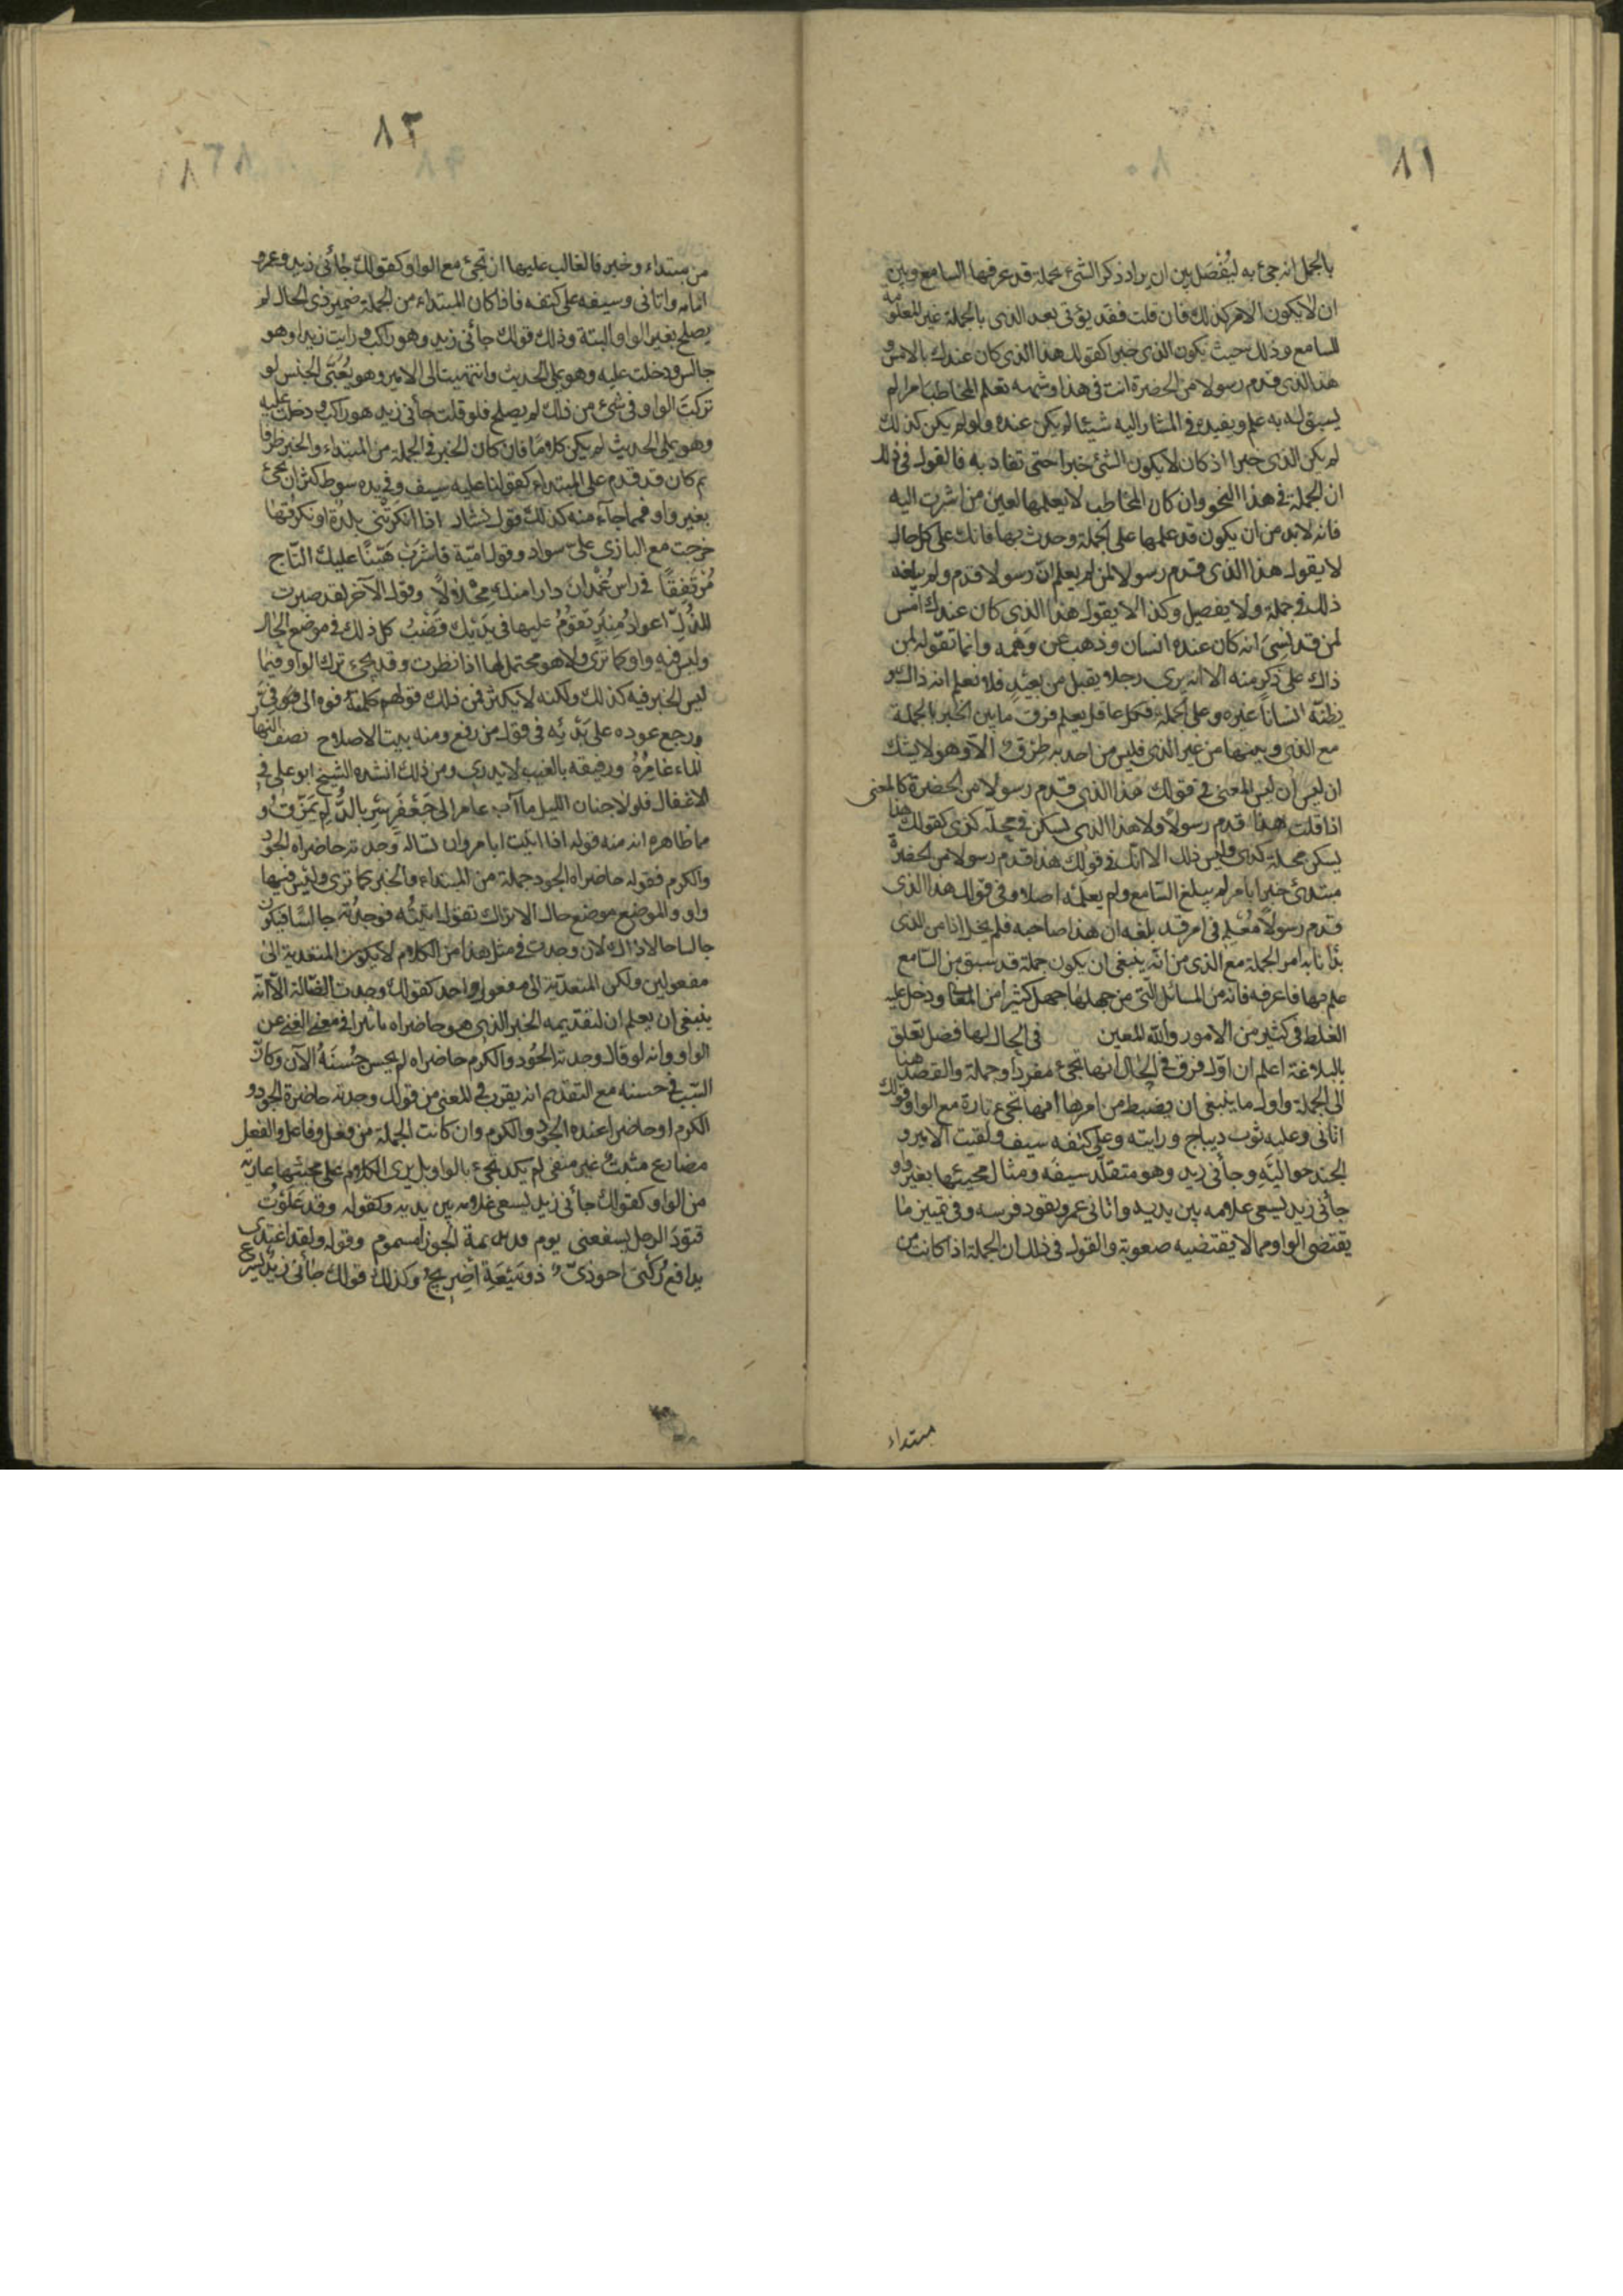 ٨١
بالجمل انه جئ به ليُفصَل بين ان يراد ذكر الشئ بجملة قد عرفها السامع وبين
ان لا يكون الامر كذلك فان قلت فقد يؤتى بعد الذى بالجملة غير المعلومة
للسامع وذلك حيث يكون الذى خبرا كقولك هذا الذى كان عندك بالامس و
هذا الذى قدم رسولا من الحضرة انت فى هذا وشبهه تعلم المخاطب امرا لم
يسبق له به علم ويفيده فى المشار اليه شيئا لم يكن عنده ولو لم يكن كذلك
لم يكن الذى خبرا اذ كان لا يكون الشئ خبرا حتى تفاد به فالقول فى ذلك
ان الجملة فى هذا النحو وان كان المخاطب لا يعلمها لعين من اشرت اليه
فانه لا بد من ان يكون قد علمها على الجملة وحدث بها فانك على كل حال
لا يقول هذا الذى قدم رسولا لمن لم يعلم انّ رسولا قدم ولم يبلغه
ذلك فى جملة ولا يفصيل وكذا لا يقول هذا الذى كان عندك امس
لمن قد نسىَ انه كان عنده انسان وذهب عن وَهْمه وانما تقوله لمن
ذاك على ذكر منه الا انه يرى رجلا ويقبل من بعيد فلا نعلم انه ذاك و
يظنّه انسانا غيره وعلى الجملة فكل عاقل يعلم فرق ما بين الخبر بالجملة
مع الذى وبينها من غير الذى فليس من احد به طِرْق الّا وهو لا يشك
ان ليس ان ليس المعنى فى قولك هذا الذى قدم رسولا من الحضرة كالمعنى
اذا قلت هذا قدم رسولا ولا هذا الذى يسكن فى محلة كذى كقولك هذا
يسكن محلة كذى وليس ذلك الا انّك فى قولك هذا قدم رسولا من الحضرة
مبتدئ خبرا بامر لم يبلغ السّامع ولم يعلمْه اصلا وفى قولك هذا الذى
قدم رسولا مُعْلِم فى امر قد بلغه ان هذا صاحبه فلم يخل اذا من الذى
بدأنا به امر الجملة مع الذى من انّه ينبغى ان يكون جملة قد سبق من السّامع
علم بها فاعرفه فانه من المسائل التّى من جهلها جهل كثيرا من المعانى ودخل عليه
الغلط فى كثير من الامور والله المعين فى الحال لها فضل تعلق
بالبلاغة اعلم ان اوّل فرق فى الحال انها تجئ مفردا وجملة والقصد هنا
الى الجملة واول ما ينبغى ان يضبط من امرها انها تجئ تارة مع الواو كقولك
اتانى وعليه ثوب ديباج ورايته وعلى كتفه سيف ولقيت الامير و
الجند حواليَه وجأنى زيد وهو متقلّد سيفَه ومثال مجيئها بغير واو
جأنى زيد يسعى غلامه بين يديه واتانى عمرو يقود فرسه وفى تمييز ما
يقتضى الواو مما لا يقتضيه صعوبة والقول فى ذلك ان الجملة اذا كانت من
مبتداء
٨٢
من مبتداء وخبر فالغالب عليها ان تجئ مع الواو كقولك جأنى زيد وعمرو
امامه واتانى وسيفه على كتفه فاذا كان المبتداء من الجملة ضمير ذى الحال لم
يصلح بغير الواو البتة وذلك قولك جأنى زيد وهو راكب ورايت زيدا وهو
جالس ودخلت عليه وهو يملى الحديث وانتهيت الى الامير وهو يُعَبّى الجنس لو
تركتَ الواو فى شئ من ذلك لم يصلح فلو قلت جأنى زيد هو راكب ودخلت عليه
وهو يملى الحديث لم يكن كلامًا فان كان الخبر فى الجملة من المبتداء والخبر ظرفا
ثم كان قد قدم على المبتداء كقولنا عليه سيف وفى يده سوط كثر ان تجئ
بغير واو فمما جآء منه كذلك قول بشار اذا انكرتْنى بلدة او نكرتُها
خرجت مع البازى علىّ سواد وقول اميّة فاشرَبْ هَنيئًا عليك التّاج
مُرْتفِقًا فى راس غُمْدانَ دارا منك مِحْلالًا وقول الآخر لقد صبرت
للذّلّ اعوادُ مِنبَرٍ تقوُمُ عليها فى يَدَيْك قضيْبُ كل ذلك فى موضع الحال
وليس فيه واو كما ترى ولا هو محتمل لها اذا نظرت وقد يجئ ترك الواو فيما
ليس الخبر فيه كذلك ولكنه لا يكثر فمن ذلك قولهم كلّمتُه فوه الى فىّ
ورجع عوده على بَدْئه فى قول من رفع ومنه بيت الاصلاح نصف النهار
الماء غامرُهُ ورفيقه بالغيب لا يدرى ومن ذلك انشده الشيخ ابو على فى
الاغفال فلولا جنان الليل ما آب عامر الى جَعْفَرٍ سِرباله لم يمَزّقُ و
مما ظاهره انه منه قوله اذا اتيت ابا مروان تساله وجدته حاضراه الجود
والكرم فقوله حاضراه الجود جملة من المبتداء والخبر كما ترى وليس فيها
واو والموضع موضع حال الا تراك تقول اتيتُه فوجدتُه جالسًا فيكون
جالسا حالا ذاك لان وجدت فى مثل هذا من الكلام لا يكون المتعدية الى
مفعولين ولكن المتعدّية الى مفعول واحد كقولك وجدت الضالة الّا انّه
ينبغى ان يعلم ان لتقديمه الخبر الذى هو حاضراه تاثيرا فى معنى الغنى عن
الواو وانه لو قال وجدته الجُود والكرم حاضراه لم يحسن حُسْنَهُ الآن وكان
السّبب فى حسنه مع التقديم انه يقرب فى المعنى من قولك وجدته حاضرة الجود و
الكرم او حاضرا عنده الجُود والكرم وان كانت الجملة من فعل وفاعل والفعل
مضارع مثبتٌ غير منفى لم يكد يجئ بالواو بل يرى الكلام على مجيئها عارية
من الواو كقولك جأنى زيد يسعى غلامه بين يديه وكقوله وقد عَلَوْتُ
قتوُدَ الرحل يسفعنى يوم الجوزا مسموم وقوله ولقد اغتدى
يدافع رُكنى احوذىّ ذو مَيْعَةٍ اضرِيجُ وكذلك قولك جأنى زيد يسرع